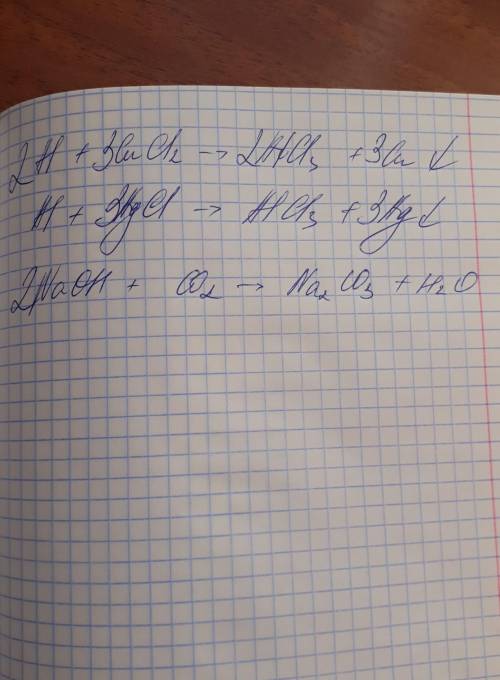 2H + 3CuCl₂ → 2HCl₃ + 3Cu ↓
H + 3HgCl → HCl₃ + 3Hg ↓
2NaOH + CO₂ → Na₂CO₃ + H₂O